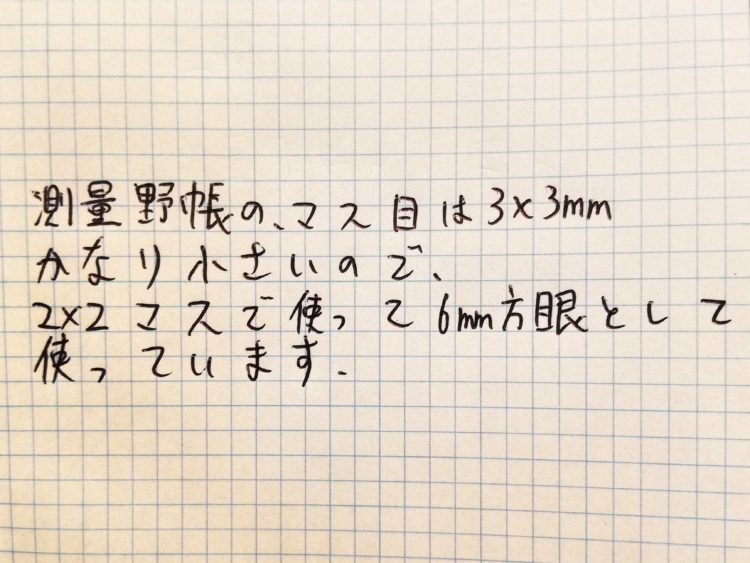 測量野帳の、マス目は3×3mm
かなり小さいので、
2×2マスで使って6mm方眼として
使っています.